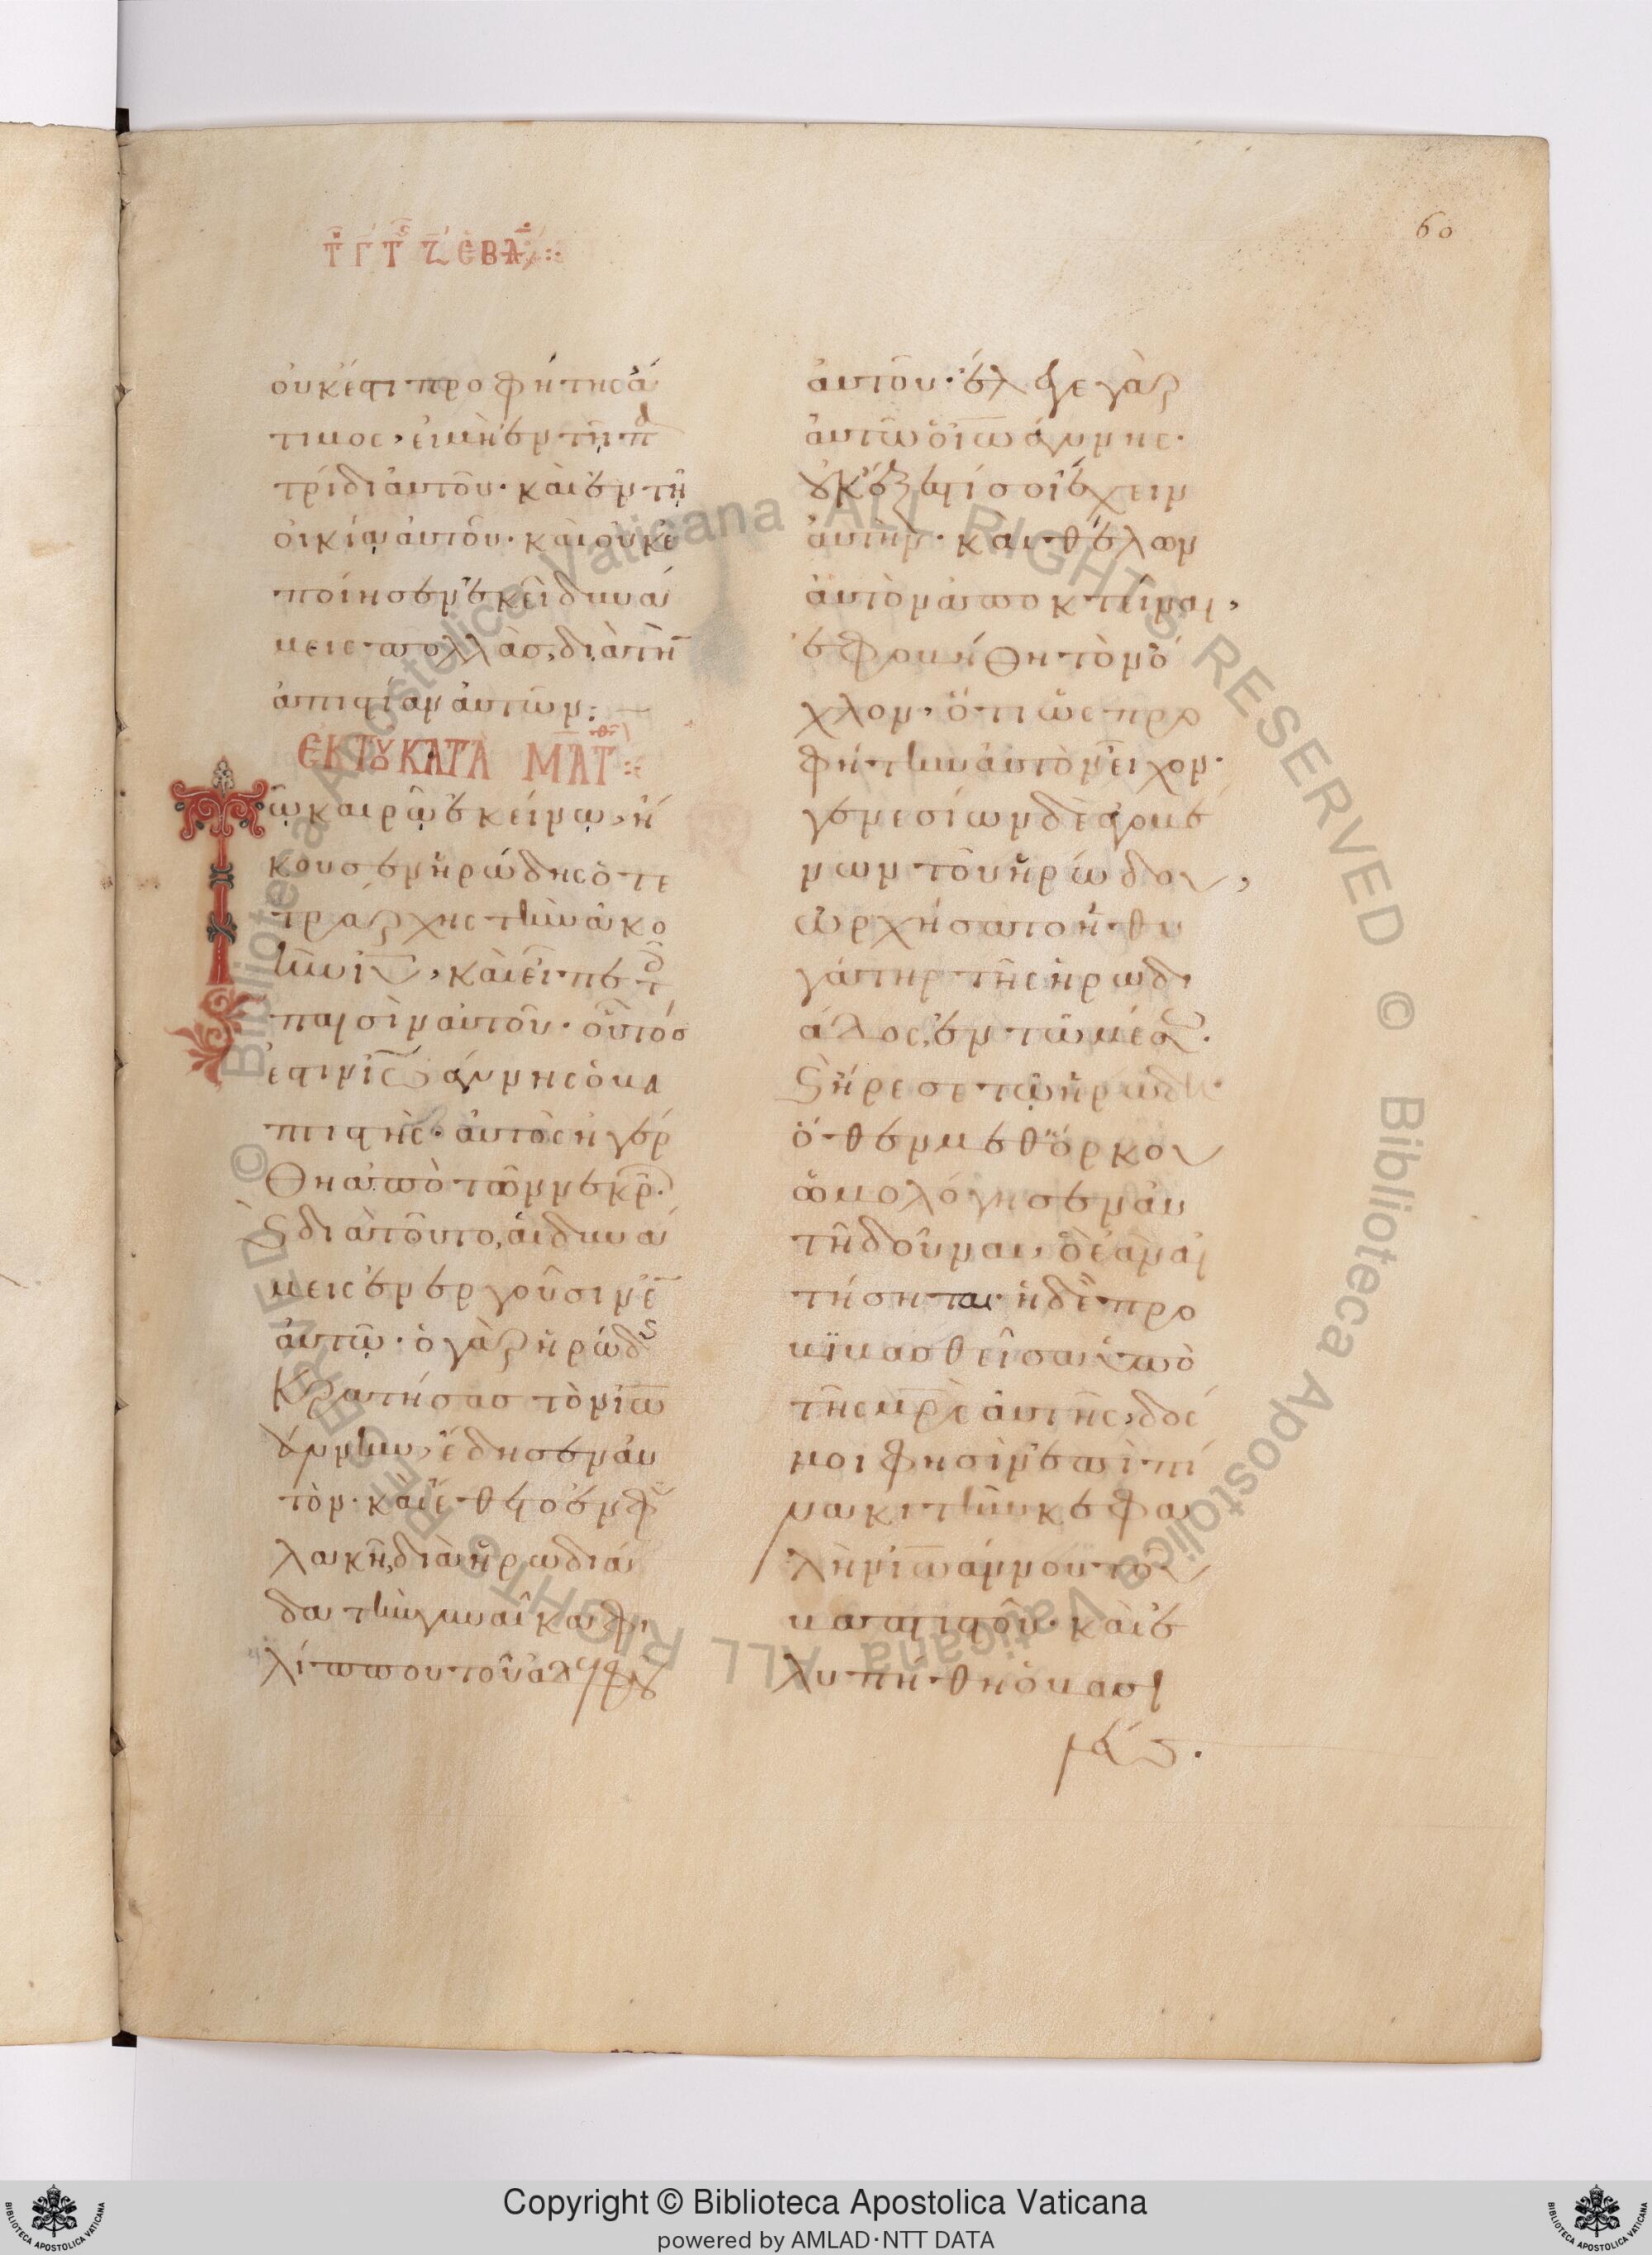 60
Τῇ γ τ ζ ἑβδ
οὐκ ἔστι προφήτης ἄ
τιμος, εἰ μὴ ἐν τῇ π
τρίδι αὐτοῦ· καὶ ἐν τῇ
οἰκίᾳ αὐτοῦ· καὶ οὐκ ἐ
ποίησεν ἐκεῖ δυνά
μεις πολλὰς, διὰ τὴν
ἀπιστίαν αὐτῶν:
ΕΚ ΤΟΥ ΚΑΤΑ ΜΑΤΘ
Τῷ καιρῷ ἐκείνῳ, ἤ
κουσεν ἡρώδης ὁ τε
τράρχης τὴν ἀκο
ὴν ιυ, καὶ εἶπε τοῖς
παισὶν αὐτοῦ· οὗτός
ἐστιν ἰωάννης ὁ βα
πτιστὴς· αὐτὸς ἠγέρ
θη ἀπὸ τῶν νεκρ·
καὶ διὰ τοῦτο, αἱ δυνά
μεις ἐνεργοῦσιν ἐν
αὐτῷ· ὁ γὰρ ἡρώδης
κρατήσας τὸν ἰω
άννην, ἔδησεν αὐ
τὸν· καὶ ἔθετο ἐν φυ
λακῇ, διὰ ἡρωδιά
δα τὴν γυναῖκα φι
λίππου τοῦ ἀδελφοῦ
αὐτοῦ· ἔλεγε γὰρ
αὐτῷ ὁ ἰωάννης·
οὐκ ἔξεστί σοι ἔχειν
αὐτήν· καὶ θέλων
αὐτὸν ἀποκτεῖναι,
ἐφοβήθη τὸν ὄ
χλον, ὅτι ὡς προ
φήτην αὐτὸν εἶχον·
γενεσίων δὲ ἀγομέ
νων τοῦ ἡρώδου,
ὠρχήσατο ἡ θυ
γάτηρ τῆς ἡρωδι
άδος, ἐν τῷ μέσῳ·
καὶ ἤρεσε τῷ ἡρώδῃ·
ὅθεν μεθ ὅρκου
ὡμολόγησεν αὐ
τῇ δοῦναι, ὃ ἐὰν αἰ
τήσηται· ἡ δὲ προ
βιβασθεῖσα ὑπὸ
τῆς μρς αὐτῆς, δός
μοι φησὶν ἐπὶ πί
νακι τὴν κεφα
λὴν ἰωάννου τοῦ
βαπτιστοῦ· καὶ ἐ
λυπήθη ὁ βασι
λεύς·
Copyright © Biblioteca Apostolica Vaticana
powered by AMLAD·NTT DATA